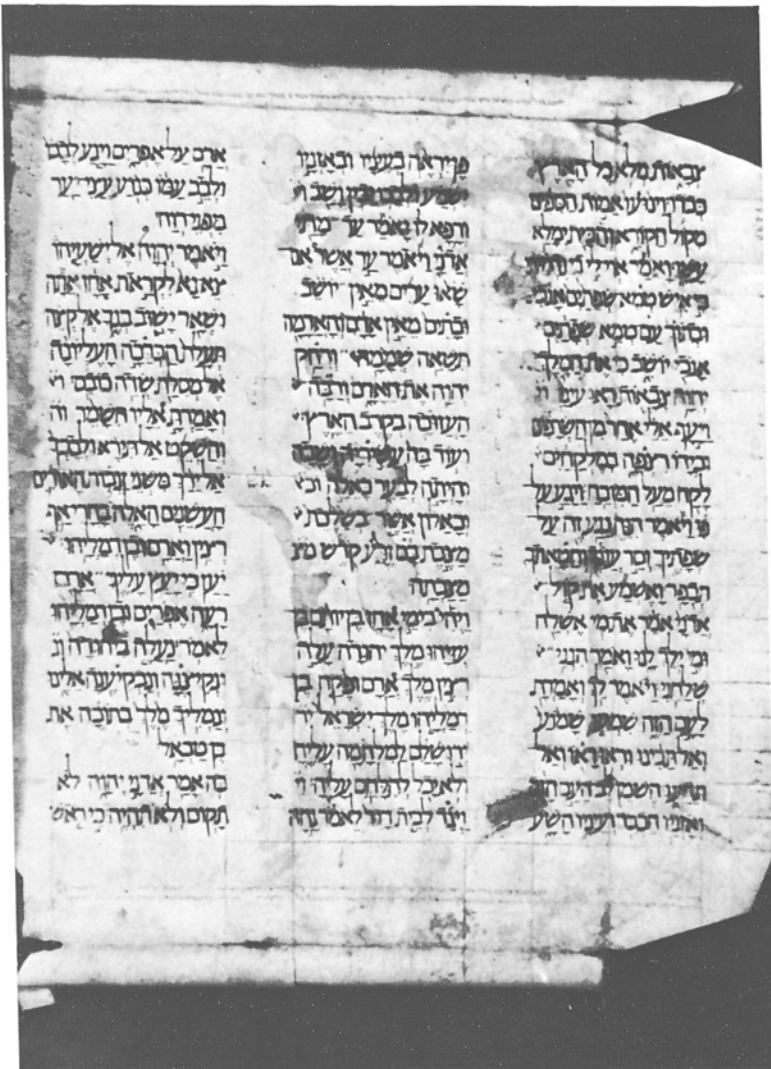 צבאות מלא כל הארץ
כבדו וינועו אמות הספים
מקול הקורא והבית ימלא
עשן ואמר אוי לי כי נדמיתי
כי איש טמא שפתים אנכי
ובתוך עם טמא שפתים
אנכי יושב כי את המלך
יהוה צבאות ראו עיני וי
ויעף אלי אחד מן השרפים
ובידו רצפה במלקחים
לקח מעל המזבח ויגע על
פי ויאמר הנה נגע זה על
שפתיך וסר עונך וחטאתך
תכפר ואשמע את קול
אדני אמר את מי אשלח
ומי ילך לנו ואמר הנני
שלחני ויאמר לך ואמרת
לעם הזה שמעו שמוע
ואל תבינו וראו ראו ואל
תדעו השמן לב העם הזה
ואזניו הכבד ועיניו השע
פן יראה בעיניו ובאזניו
ישמע ולבבו יבין ושב ו
ורפא לו ואמר עד מתי
אדני ויאמר עד אשר אם
שאו ערים מאין יושב
ובתים מאין אדם והאדמה
תשאה שממה ורחק
יהוה את האדם ורבה
העזובה בקרב הארץ
ועוד בה עשיריה ושבה
והיתה לבער כאלה וכ
וכאלון אשר בשלכת
מצבת בם זרע קדש מצ
מצבתה
ויהי בימי אחז בן יותם בן
עזיהו מלך יהודה עלה
רצין מלך ארם ופקח בן
רמליהו מלך ישראל יר
ירושלם למלחמה עליה
ולא יכל להלחם עליה ו
ויגד לבית דוד לאמר נחה
ארם על אפרים וינע לבבו
ולבב עמו כנוע עצי יער
מפני רוח
ויאמר יהוה אל ישעיהו
צא נא לקראת אחז אתה
ושאר ישוב בנך אל קצה
תעלת הברכה העליונה
אל מסלת שדה כובס ו
ואמרת אליו השמר וה
והשקט אל תירא ולבבך
אל ירך משני זנבות האודים
העשנים האלה בחרי אף
רצין וארם ובן רמליהו
יען כי יעץ עליך ארם
רעה אפרים ובן רמליהו
לאמר נעלה ביהודה ונ
ונקיצנה ונבקיענה אלינו
ונמליך מלך בתוכה את
בן טבאל
כה אמר אדני יהוה לא
תקום ולא תהיה כי ראש